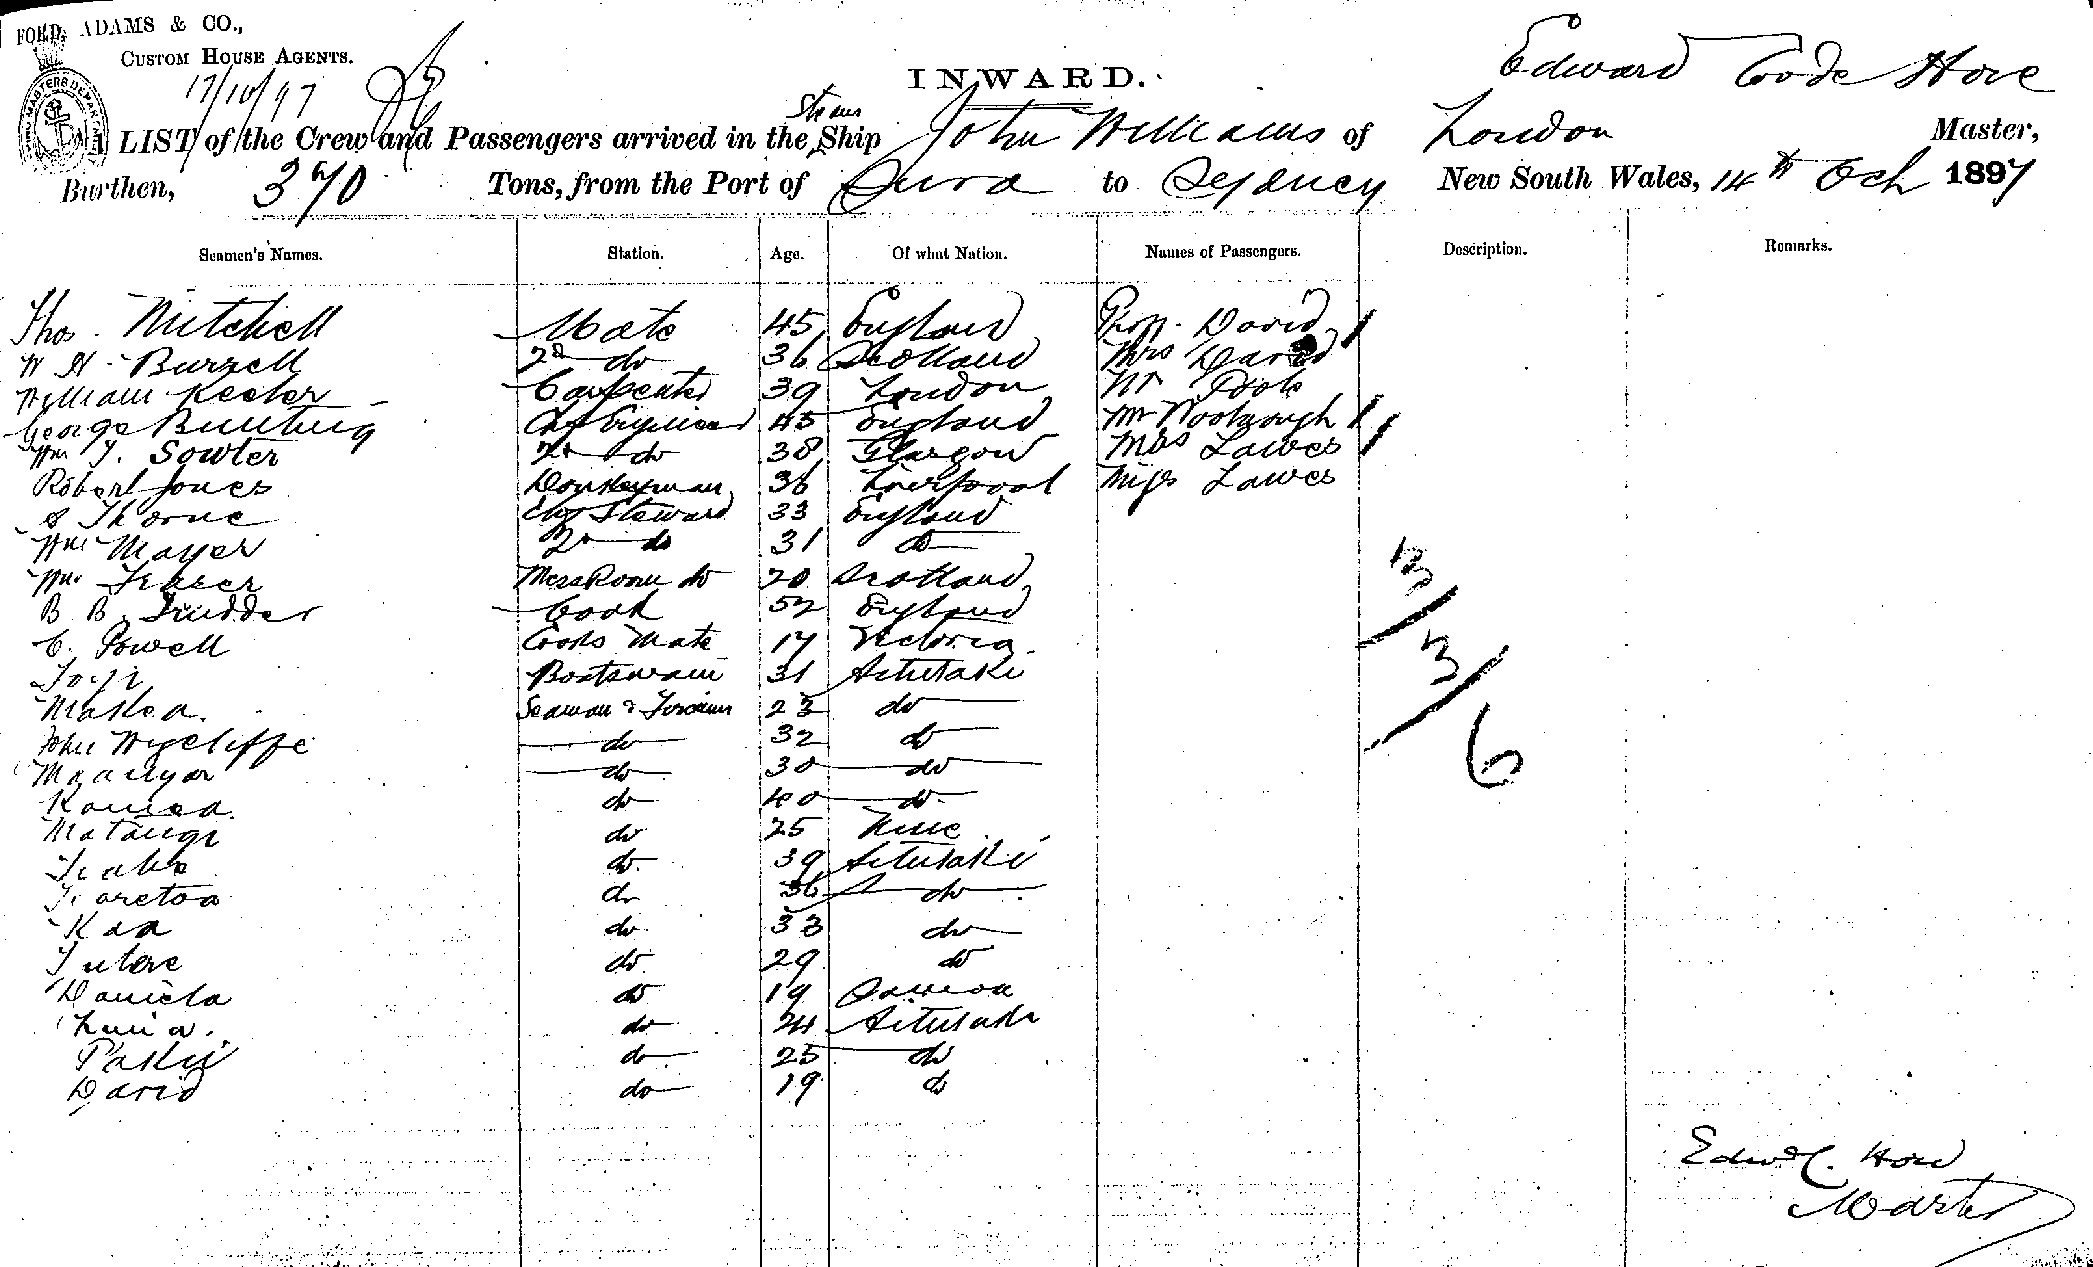 FORD, ADAMS & CO.,
CUSTOM HOUSE AGENTS.
17/10/97
INWARD.
Edward Code Hore
LIST of the Crew and Passengers arrived in the Steam Ship John Williams of London Master,
Burthen, 370 Tons, from the Port of Suva to Sydney New South Wales, 14th Oct 1897
Seamen's Names. Station. Age. Of what Nation. Names of Passengers. Description. Remarks.
Thos. Mitchell Mate 45 England Prof. David
W H Burzell 2d do 36 Scotland Mrs David
William Keeler Carpenter 39 London Mr Poole
George Bunting Chf Engineer 45 England Mr Woolnough
Wm T. Sowter 2d do 38 Glasgow Mrs Lawes
Robert Jones Donkeyman 36 Liverpool Miss Lawes
S Thorne Chf Steward 33 England
Wm Mayer 2d do 31 do
Wm Fraser Mess Room do 20 Scotland
B B Trudder Cook 52 England
C. Powell Cooks Mate 17 Victoria
Boatswain 31 Aitutaki
Makea. Seaman & Fireman 23 do
John Wycliffe do 32 do
do 30 do
do 40 do
Matangi do 25 Niue
do 39 Aitutaki
do 36 do
Kaa do 33 do
do 29 do
Daniela do 19 Samoa
do 24 Aitutaki
do 25 do
David do 19 do
3/3/6
Edwd C. Hore
Master